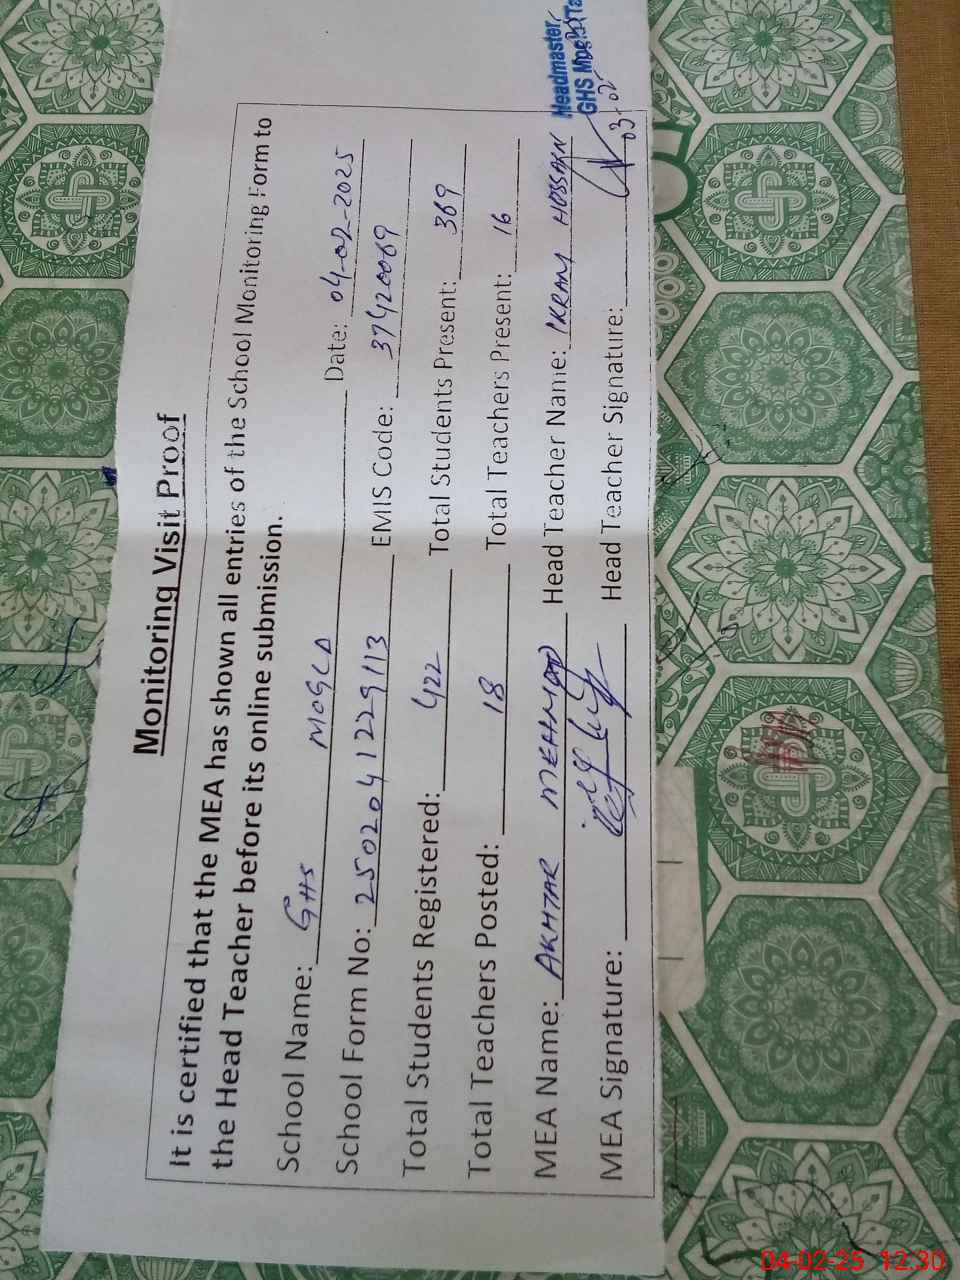 Monitoring Visit Proof
It is certified that the MEA has shown all entries of the School Monitoring Form to
the Head Teacher before its online submission.
School Name: GHS MOGLA Date: 04-02-2025
School Form No: 2502041229113 EMIS Code: 37420069
Total Students Registered: 422 Total Students Present: 369
Total Teachers Posted: 18 Total Teachers Present: 16
MEA Name: AKHTAR MEHMOOD Head Teacher Name: IKRAM HOSSAIN
MEA Signature: Head Teacher Signature:
Headmaster
GHS Mogla
03-02
04-02-25 12:30